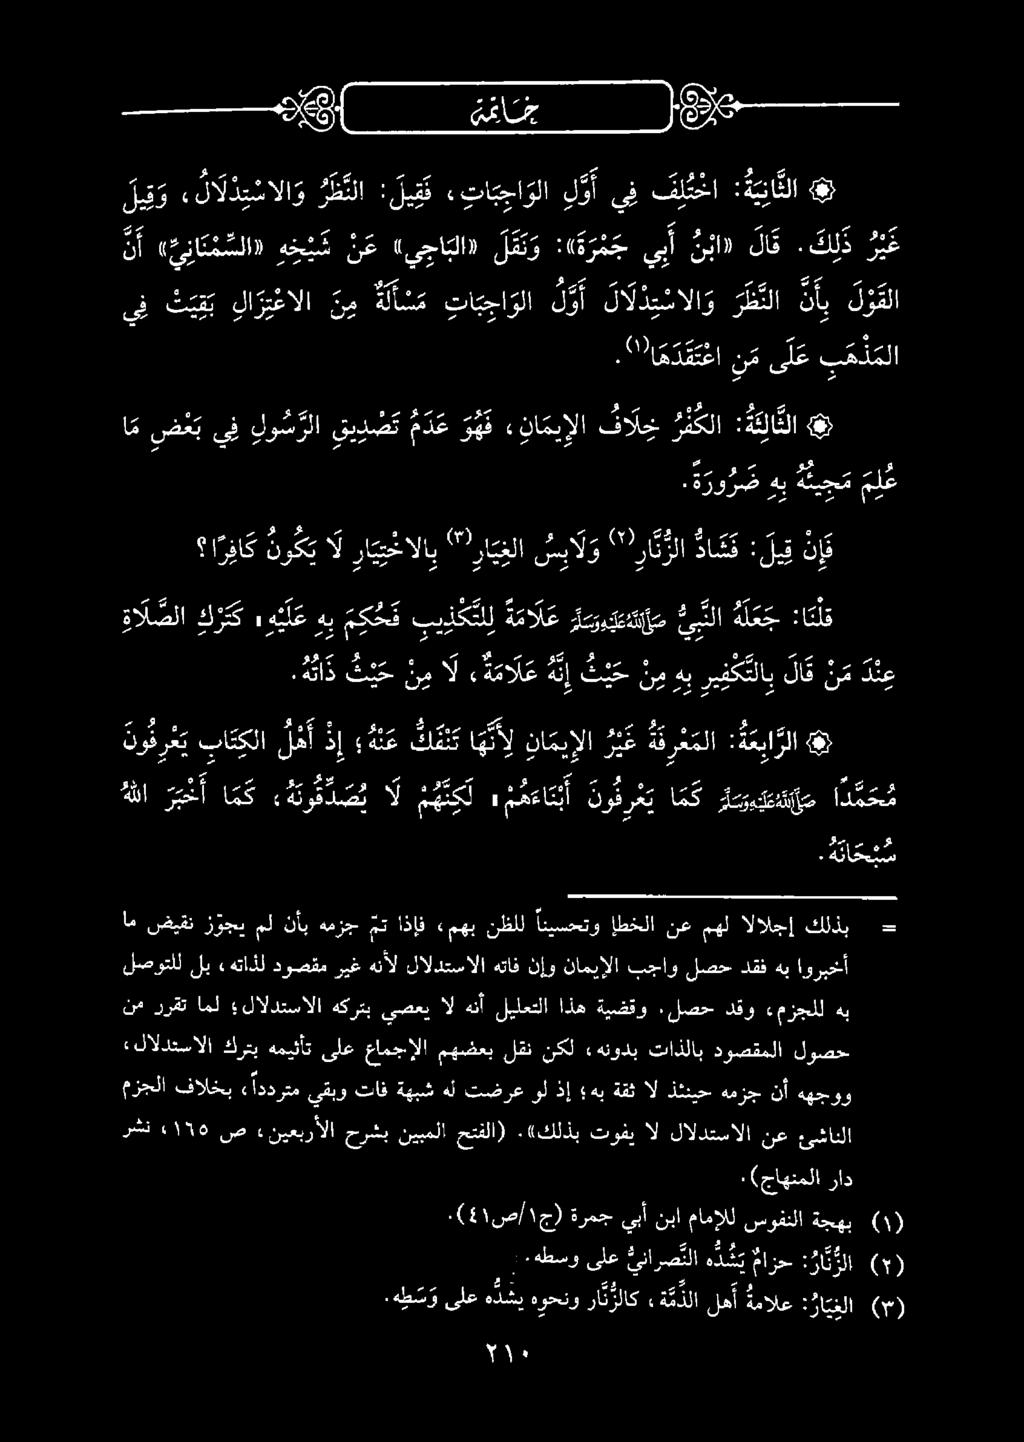 خاتمة
الثَّانِيَةُ: اخْتُلِفَ فِي أَوَّلِ الوَاجِبَاتِ، فَقِيلَ: النَّظَرُ وَالاسْتِدْلَالُ، وَقِيلَ
غَيْرُ ذَلِكَ. قَالَ «ابْنُ أَبِي جَمْرَةَ»: وَنَقَلَ «البَاجِي» عَنْ شَيْخِهِ «السِّمْنَانِيِّ» أَنَّ
القَوْلَ بِأَنَّ النَّظَرَ وَالاسْتِدْلَالَ أَوَّلُ الوَاجِبَاتِ مَسْأَلَةٌ مِنَ الاعْتِزَالِ بَقِيَتْ فِي
المَذْهَبِ عَلَى مَنِ اعْتَقَدَهَا(١).
الثَّالِثَةُ: الكُفْرُ خِلَافُ الإِيمَانِ، فَهُوَ عَدَمُ تَصْدِيقِ الرَّسُولِ فِي بَعْضِ مَا
عُلِمَ مَجِيئُهُ بِهِ ضَرُورَةً.
فَإِنْ قِيلَ: فَشَادُّ الزُّنَّارِ(٢) وَلَابِسُ الغِيَارِ(٣) بِالاخْتِيَارِ لَا يَكُونُ كَافِرًا؟
قلْنَا: جَعَلَهُ النَّبِيُّ صَلَّى اللَّهُ عَلَيْهِ وَسَلَّمَ عَلَامَةً لِلتَّكْذِيبِ فَحُكِمَ بِهِ عَلَيْهِ، كَتَرْكِ الصَّلَاةِ
عِنْدَ مَنْ قَالَ بِالتَّكْفِيرِ بِهِ مِنْ حَيْثُ إِنَّهُ عَلَامَةٌ، لَا مِنْ حَيْثُ ذَاتُهُ.
الرَّابِعَةُ: المَعْرِفَةُ غَيْرُ الإِيمَانِ لِأَنَّهَا تَنْفَكُّ عَنْهُ؛ إِذْ أَهْلُ الكِتَابِ يَعْرِفُونَ
مُحَمَّدًا صَلَّى اللَّهُ عَلَيْهِ وَسَلَّمَ كَمَا يَعْرِفُونَ أَبْنَاءَهُمْ، لَكِنَّهُمْ لَا يُصَدِّقُونَهُ، كَمَا أَخْبَرَ اللهُ
سُبْحَانَهُ.
= بذلك إجلالا لهم عن الخطإ وتحسيناً للظن بهم، فإذا تمّ جزمه بأن لم يجوّز نقيض ما
أخبروا به فقد حصل واجب الإيمان وإن فاته الاستدلال لأنه غير مقصود لذاته، بل للتوصل
به للجزم، وقد حصل. وقضية هذا التعليل أنه لا يعصي بتركه الاستدلال؛ لما تقرر من
حصول المقصود بالذات بدونه، لكن نقل بعضهم الإجماع على تأثيمه بترك الاستدلال،
ووجهه أن جزمه حينئذ لا ثقة به؛ إذ لو عرضت له شبهة فات وبقي متردداً، بخلاف الجزم
الناشئ عن الاستدلال لا يفوت بذلك». (الفتح المبين بشرح الأربعين، ص ١٦٥، نشر
دار المنهاج).
(١) بهجة النفوس للإمام ابن أبي جمرة (ج١/ص٤١).
(٢) الزُّنَّارُ: حزامٌ يَشُدُّه النَّصرانيُّ على وسطه.
(٣) الغِيَارُ: علامةُ أَهلِ الذِّمَّة، كالزُّنَّار ونحوِه يشدُّه على وَسَطِه.
٢١٠